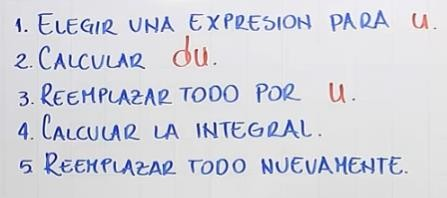 1. ELEGIR UNA EXPRESION PARA u.
2. CALCULAR du.
3. REEMPLAZAR TODO POR u.
4. CALCULAR LA INTEGRAL.
5. REEMPLAZAR TODO NUEVAMENTE.